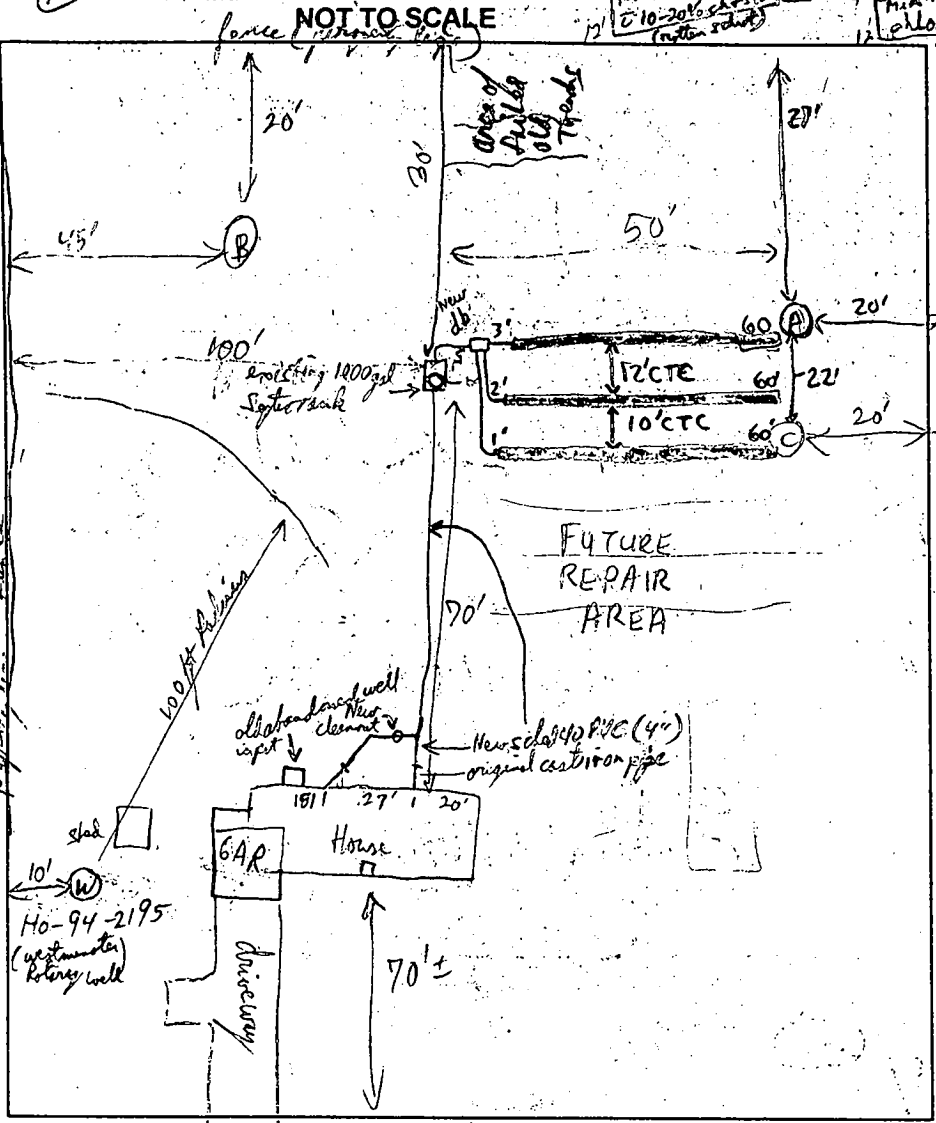 NOT TO SCALE
fence
12' 10-20%
(rotten schist)
12'
20'
30'
area of
failed
old
trench
27'
45'
B
50'
New
db
3'
60
A
20'
100'
existing 1000 gal
Septic tank
5'
12' CTC
2'
60'
22'
10' CTC
1'
60'
C
20'
FUTURE
REPAIR
AREA
100 ft Radius
70'
old abandoned well
in pit
New
cleanout
New sched 40 PVC (4")
original cast iron pipe
15' 27' 20'
shed
GAR
House
10'
W
Ho-94-2195
(westminster)
Rotary well
driveway
70' ±